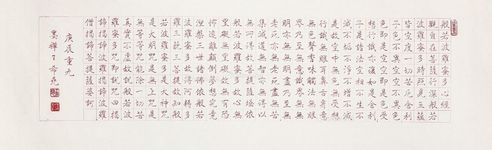 般若波羅蜜多心經
觀自在菩薩行深般若
波羅蜜多時照見五蘊
皆空度一切苦厄舍利
子色不異空空不異色
色即是空空即是色受
想行識亦復如是舍利
子是諸法空相不生不
滅不垢不淨不增不減
是故空中無色無受想
行識無眼耳鼻舌身意
無色聲香味觸法無眼
界乃至無意識界無無
明亦無無明盡乃至無
老死亦無老死盡無苦
集滅道無智亦無得以
無所得故菩提薩埵依
般若波羅蜜多故心無
罣礙無罣礙故無有恐
怖遠離顛倒夢想究竟
涅槃三世諸佛依般若
波羅蜜多故得阿耨多
羅三藐三菩提故知般
若波羅蜜多是大神咒
是大明咒是無上咒是
無等等咒能除一切苦
真實不虛故說般若波
羅蜜多咒即說咒曰揭
諦揭諦波羅揭諦波羅
僧揭諦菩提薩婆訶
庚辰重九